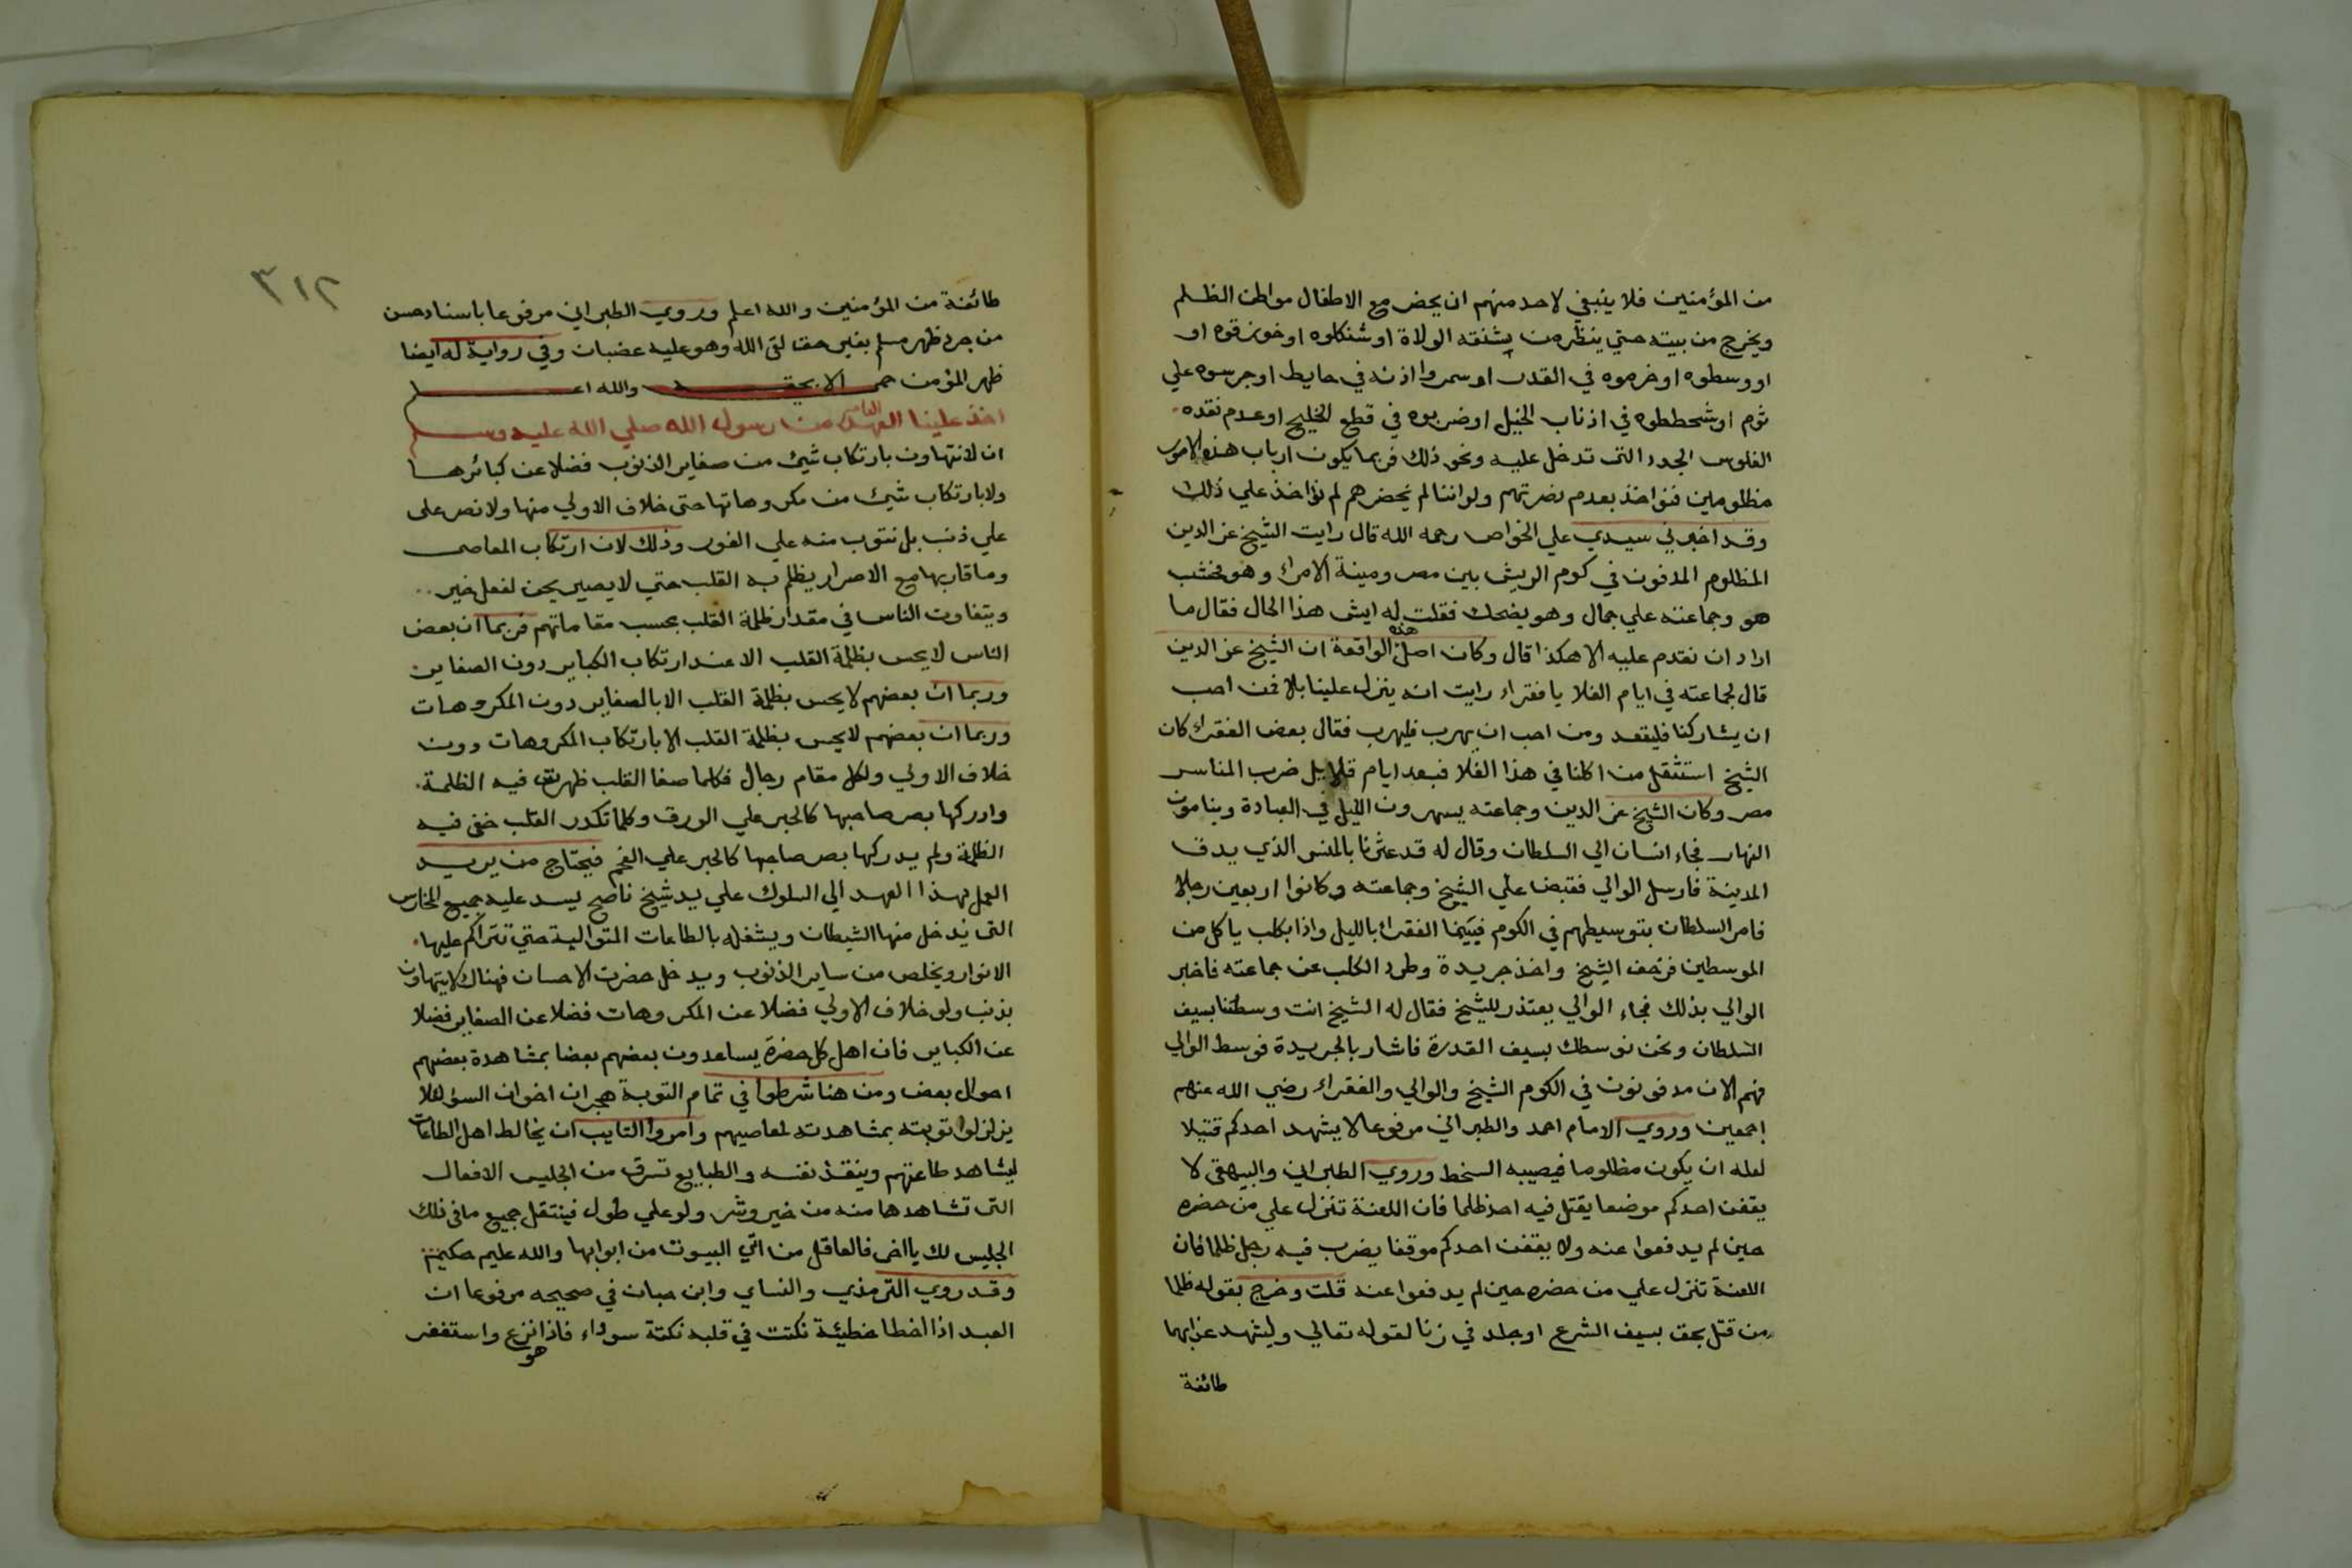 من المؤمنين فلا ينبغي لاحد منهم ان يحضر مع الاطفال مواطن الظلم
ويخرج من بيته حتي ينظر من يشنقه الولاة او شنكلوه او خوزقوه او
او وسطوه او خرموه في القدر او سمروا اذنه في حايط او جرسوه علي
ثوم او شحططوه في اذناب الخيل او ضربوه في قطع الخليج او عدم نقده
الفلوس الجدد التى تدخل عليه ونحو ذلك فربما يكون ارباب هذه الامور
مظلومين فنواخذ بعدم نصرتهم ولو اننا لم نحضرهم لم نؤاخذ علي ذلك
وقد اخبرني سيدي علي الخواص رحمه الله قال رايت الشيخ عز الدين
المظلوم المدفون في كوم الريش بين مصر ومينة الامراء وهو مخشب
هو وجماعته علي جمال وهو يضحك فقلت له ايش هذا الحال فقال ما
اراد ان نقدم عليه الا هكذا قال وكان اصل هذه الواقعة ان الشيخ عز الدين
قال لجماعته في ايام الغلا يا فقراء رايت انه ينزل علينا بلاء فمن احب
ان يشاركنا فليقعد ومن احب ان يهرب فليهرب فقال بعض الفقراء كان
الشيخ استثقل من اكلنا في هذا الغلا فبعد ايام قلايل ضرب المناسر
مصر وكان الشيخ عز الدين وجماعته يسهرون الليل في العبادة وينامون
النهار فجاء انسان الي السلطان وقال له قد عثرنا بالمنسر الذي يدق
المدينة فارسل الوالي فقبض علي الشيخ وجماعته وكانوا اربعين رجلا
فامر السلطان بتوسيطهم في الكوم فبينما الفقراء بالليل واذا بكلب ياكل من
الموسطين فزحف الشيخ واخذ جريدة وطرد الكلب عن جماعته فاخبر
الوالي بذلك فجاء الوالي يعتذر للشيخ فقال له الشيخ انت وسطتنا بسيف
السلطان ونحن نوسطك بسيف القدرة فاشار بالجريدة فوسط الوالي
فهم الان مدفونون في الكوم الشيخ والوالي والفقراء رضي الله عنهم
اجمعين وروي الامام احمد والطبراني مرفوعا لا يشهد احدكم قتيلا
لعله ان يكون مظلوما فيصيبه السخط وروي الطبراني والبيهقى لا
يقفن احدكم موضعا يقتل فيه احد ظلما فان اللعنة تنزل علي من حضره
حين لم يدفعوا عنه ولا يقفن احدكم موقفا يضرب فيه رجل ظلما فان
اللعنة تنزل علي من حضره حين لم يدفعوا عنه قلت وخرج بقوله ظلما
من قتل بحق بسيف الشرع او جلد في زنا لقوله تعالي وليشهد عذابهما
طائفة
٣١٢
طائفة من المؤمنين والله اعلم وروي الطبراني مرفوعا باسناد حسن
من جرد ظهر مسلم بغير حق لقى الله وهو عليه غضبان وفي رواية له ايضا
ظهر المؤمن حمى الا بحقه والله اعلم
اخذ علينا العهد العام من رسول الله صلي الله عليه وسلم
ان لا نتهاون بارتكاب شيئ من صغاير الذنوب فضلا عن كبائرها
ولا بارتكاب شيئ من مكروهاتها حتى خلاف الاولي منها ولا نصر على
علي ذنب بل نتوب منه علي الفور وذلك لان ارتكاب المعاصى
وما قاربها مع الاصرار يظلم به القلب حتي لا يصير يحن لفعل خير
ويتفاوت الناس في مقدار ظلمة القلب بحسب مقاماتهم فربما ان بعض
الناس لا يحس بظلمة القلب الا عند ارتكاب الكباير دون الصغاير
وربما ان بعضهم لا يحس بظلمة القلب الا بالصغاير دون المكروهات
وربما ان بعضهم لا يحس بظلمة القلب الا بارتكاب المكروهات دون
خلاف الاولي ولكل مقام رجال فكلما صفا القلب ظهرت فيه الظلمة
وادركها بصر صاحبها كالحبر علي الورق وكلما تكدر القلب خفى فيه
الظلمة ولم يدركها بصر صاحبها كالحبر علي الفحم فيحتاج من يريد
العمل بهذا العهد الي السلوك علي يد شيخ ناصح يسد عليه جميع المخارس
التى يدخل منها الشيطان ويشغله بالطاعات المتوالية حتي تتراكم عليها
الانوار ويخلص من ساير الذنوب ويدخل حضرت الاحسان فهناك لا يتهاون
بذنب ولو خلاف الاولي فضلا عن المكروهات فضلا عن الصغاير فضلا
عن الكباير فان اهل كل حضرة يساعدون بعضهم بعضا بمشاهدة بعضهم
احوال بعض ومن هنا شرطوا في تمام التوبة هجران اخوان السؤ لئلا
يزلزلوا توبته بمشاهدته لمعاصيهم وامروا التايب ان يخالط اهل الطاعات
ليشاهد طاعتهم وينقذ نفسه والطبايع تسرق من الجليس الافعال
التى تشاهدها منه من خير وشر ولو علي طول فينتقل جميع ما فى ذلك
الجليس لك يا اخى فالعاقل من اتي البيوت من ابوابها والله عليم حكيم
وقد روي الترمذي والنساي وابن حبان في صحيحه مرفوعا ان
العبد اذا اخطا خطيئة نكتت في قلبه نكتة سوداء فاذا نزع واستغفر
هو